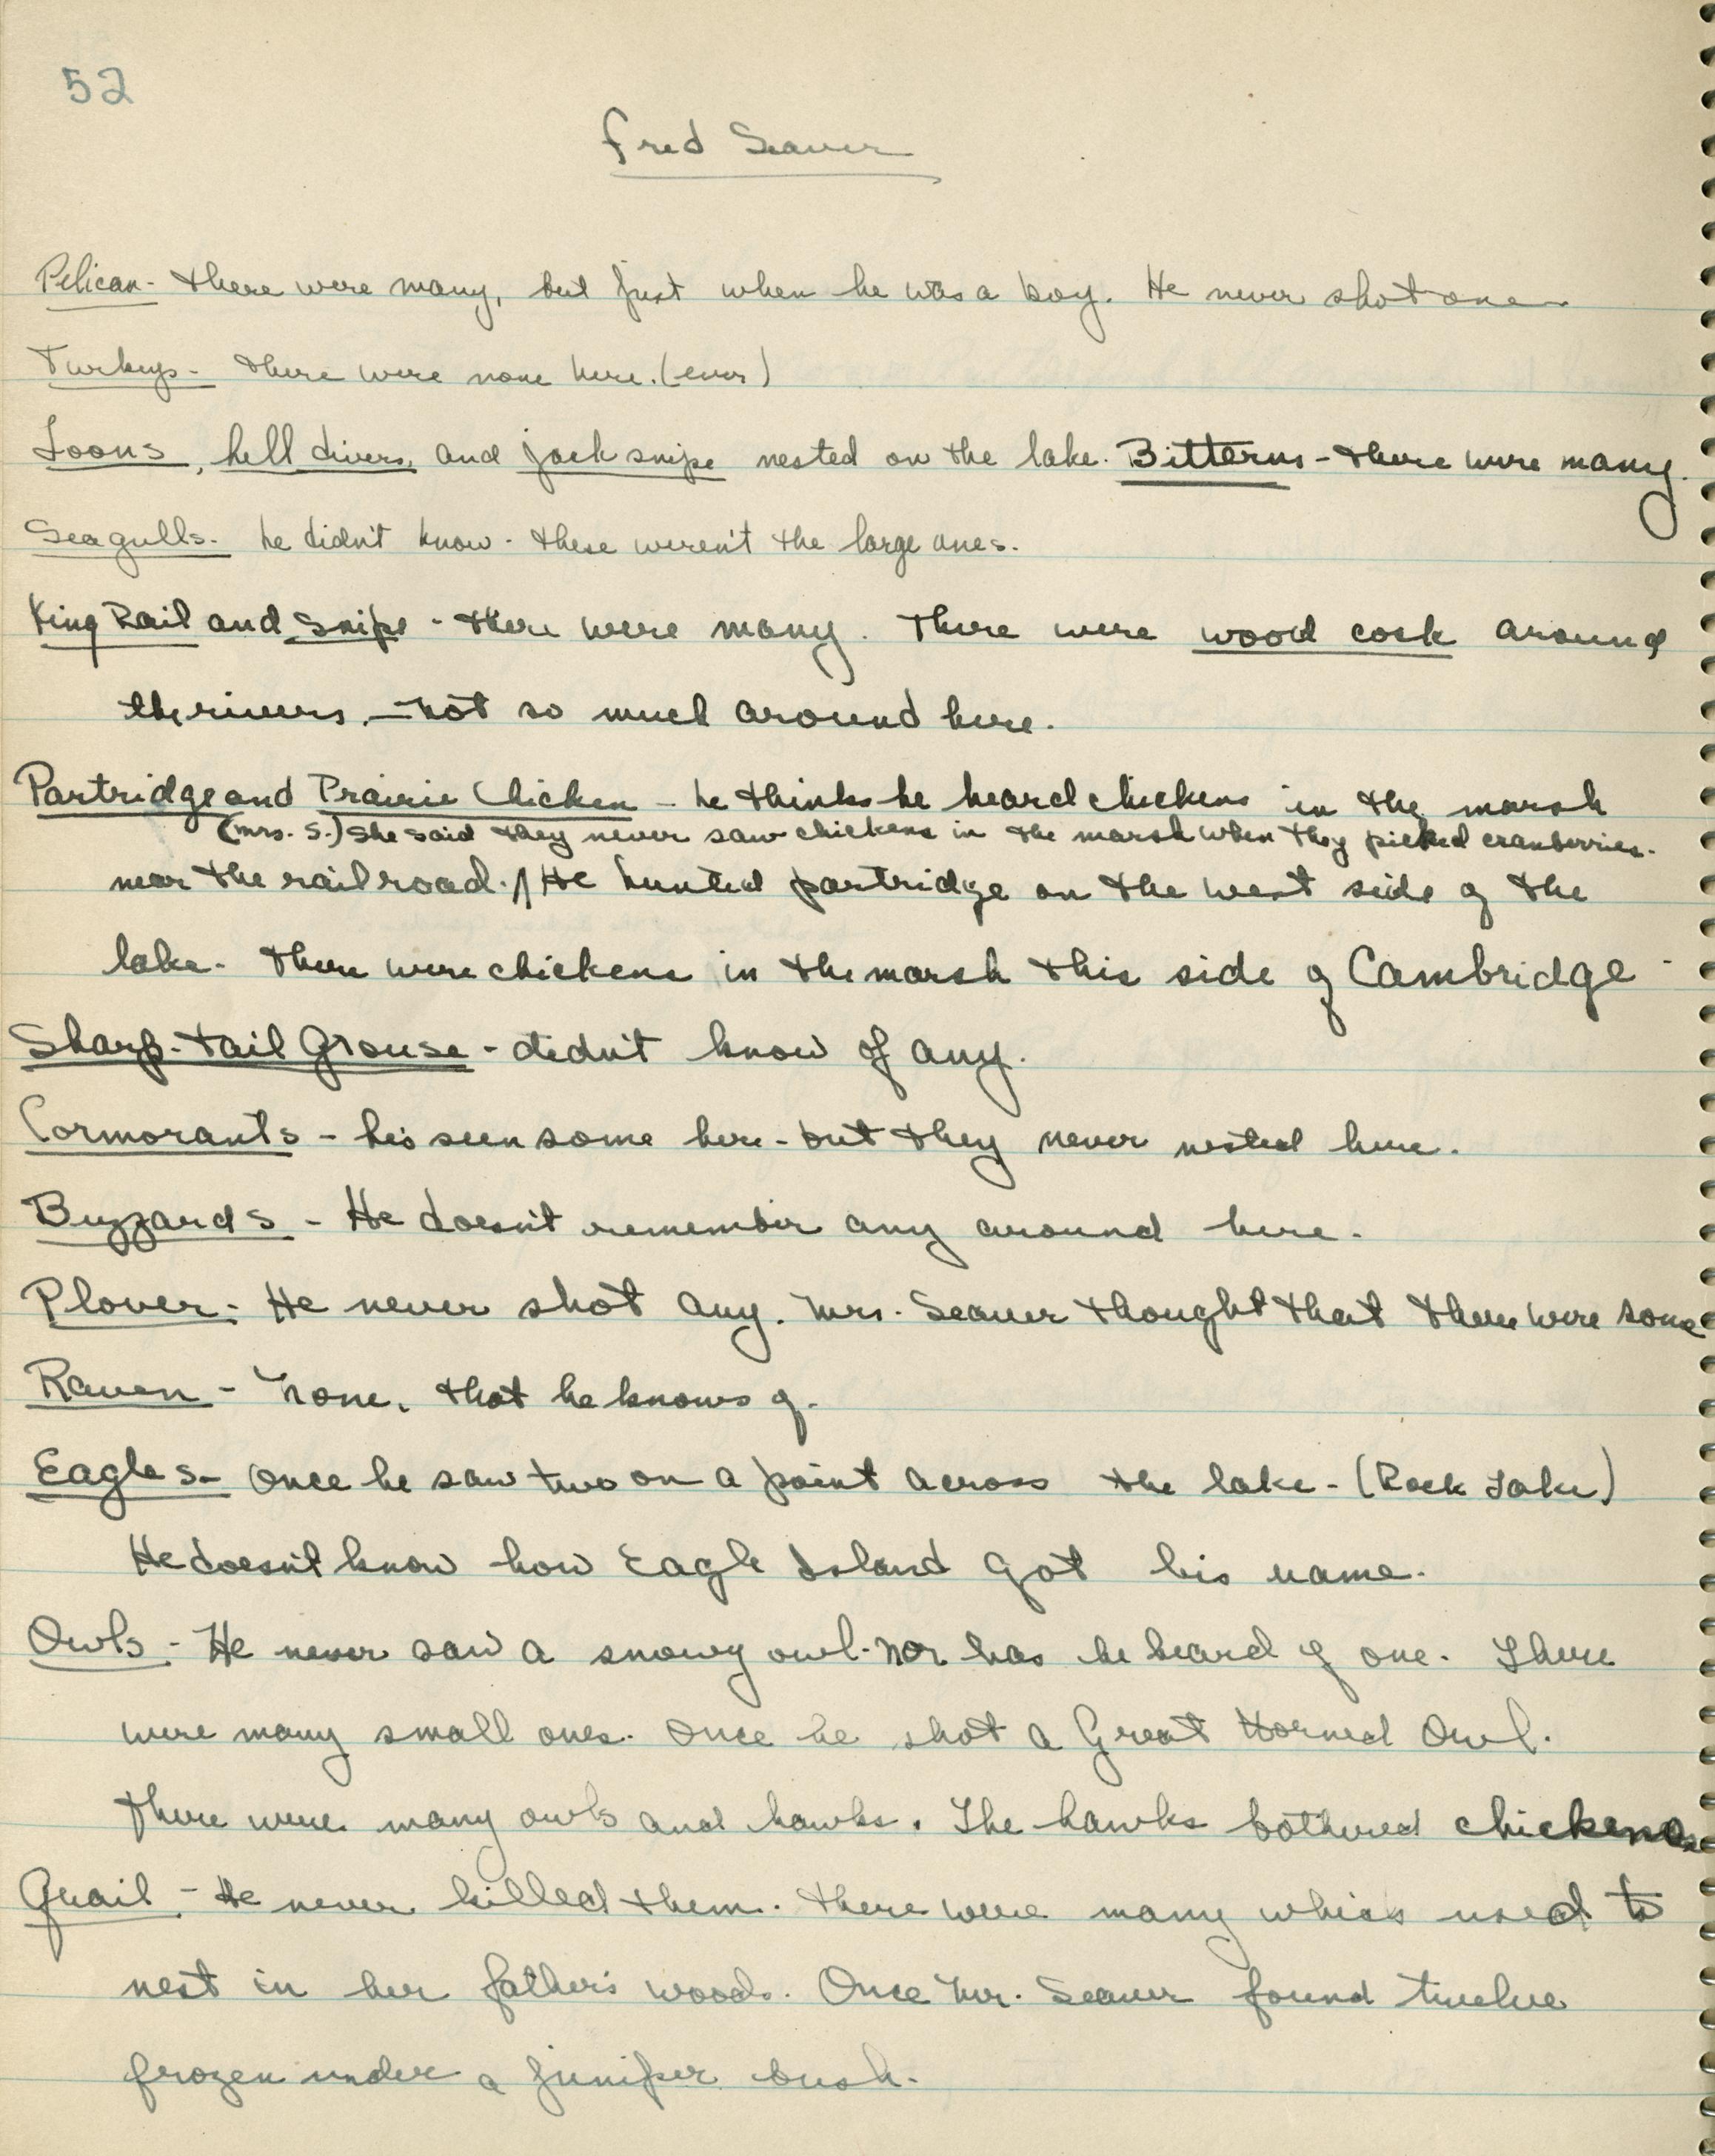 52
Fred Seaver
Pelican - there were many, but just when he was a boy. He never shot one.
Turkeys - there were none here. (ever)
Loons, hell divers, and jack snipe nested on the lake. Bitterns - there were many.
Seagulls - he didn't know - these weren't the large ones.
King Rail and Snipe - there were many. There were wood cock around
the rivers, - not so much around here.
Partridge and Prairie Chicken - he thinks he heard chickens in the marsh
(Mrs. S.) She said they never saw chickens in the marsh when they picked cranberries.
near the railroad. /\ He hunted partridge on the west side of the
lake. There were chickens in the marsh this side of Cambridge.
Sharp-tail Grouse - didn't know of any.
Cormorants - he's seen some here - but they never nested here.
Buzzards - He doesn't remember any around here.
Plover - He never shot any. Mrs. Seaver thought that there were some
Raven - None, that he knows of.
Eagles - Once he saw two on a point across the lake - (Rock Lake)
He doesn't know how Eagle Island got his name.
Owls - He never saw a snowy owl - nor has he heard of one. There
were many small ones. Once he shot a Great Horned Owl.
There were many owls and hawks. The hawks bothered chickens.
Quail - He never killed them. There were many which used to
nest in her father's woods. Once Mr. Seaver found twelve
frozen under a juniper bush.